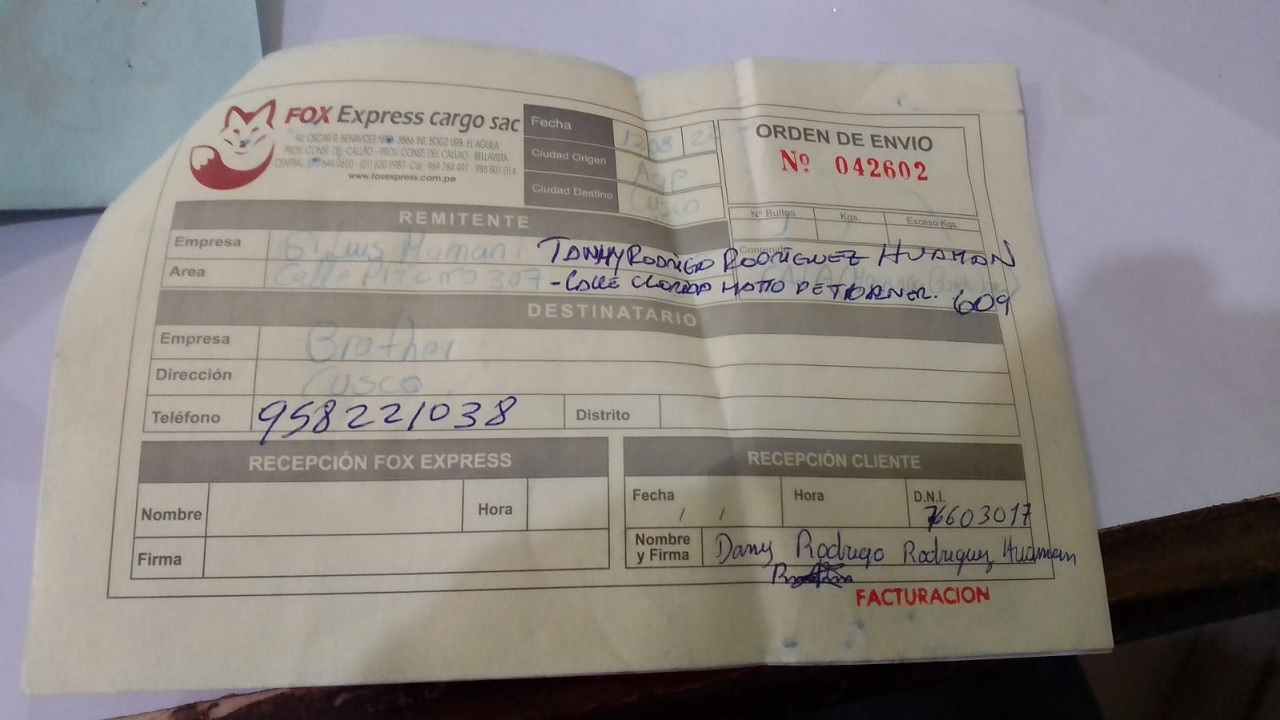 FOX Express cargo sac
AV. OSCAR R. BENAVIDES Nro. 3866 INT. BDG2 URB. EL AGUILA
PROV. CONST. DEL CALLAO - PROV. CONST. DEL CALLAO - BELLAVISTA
www.foxexpress.com.pe
Fecha 12 08
Ciudad Origen Aqp
Ciudad Destino Cusco
ORDEN DE ENVIO
Nº 042602
Nº Bultos Kgs. Exceso Kgs.
Contenido
REMITENTE
Empresa Luis Humani
Area Calle Pizarro 307
RODRIGO RODRIGUEZ HUAMAN
609
DESTINATARIO
Empresa Brother
Dirección Cusco
Teléfono 958221038 Distrito
RECEPCIÓN FOX EXPRESS
Nombre Hora
Firma
RECEPCIÓN CLIENTE
Fecha / / Hora D.N.I. 603017
Nombre y Firma Dany Rodrigo Rodriguez Huaman
FACTURACION